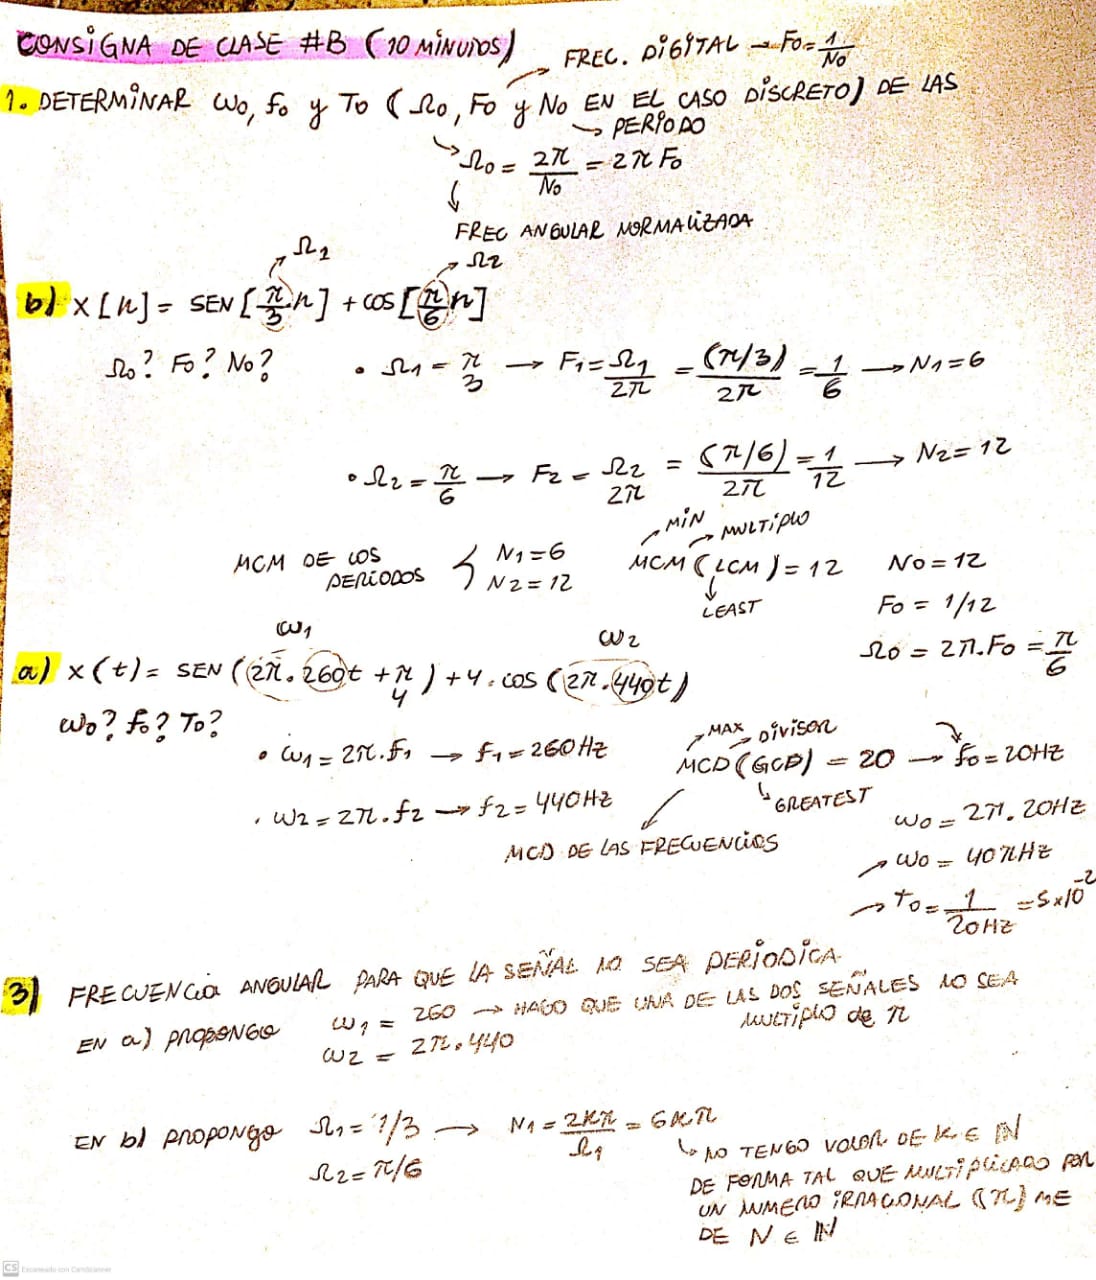 CONSIGNA DE CLASE #B (10 MINUTOS)
FREC. DIGITAL → Fo = 1/No
1. DETERMINAR ωo, fo y To (Ωo, Fo y No EN EL CASO DISCRETO) DE LAS
→ PERÍODO
Ωo = 2π/No = 2π Fo
FREC ANGULAR NORMALIZADA
Ω1
Ω2
b) x[n] = SEN[π/3 n] + cos[π/6 n]
Ωo? Fo? No?
• Ω1 = π/3 → F1 = Ω1/2π = (π/3)/2π = 1/6 → N1 = 6
• Ω2 = π/6 → F2 = Ω2/2π = (π/6)/2π = 1/12 → N2 = 12
MIN
MULTIPLO
MCM DE LOS PERIODOS { N1 = 6 N2 = 12
MCM (LCM) = 12
LEAST
No = 12
Fo = 1/12
Ωo = 2π.Fo = π/6
ω1
ω2
a) x(t) = SEN (2π.260t + π/4) + 4.cos (2π.440t)
ωo? fo? To?
• ω1 = 2π.f1 → f1 = 260Hz
MAX
DIVISOR
MCD (GCD) = 20 → fo = 20HZ
GREATEST
• ω2 = 2π.f2 → f2 = 440HZ
MCD DE LAS FRECUENCIAS
ωo = 2π.20HZ
→ ωo = 40πHz
→ To = 1/20HZ = 5x10^-2
3) FRECUENCIA ANGULAR PARA QUE LA SEÑAL NO SEA PERIODICA.
EN a) PROPONGO ω1 = 260 → HAGO QUE UNA DE LAS DOS SEÑALES NO SEA
MULTIPLO de π
ω2 = 2π.440
EN b) PROPONGO Ω1 = 1/3 → N1 = 2Kπ/Ω1 = 6Kπ
Ω2 = π/6
NO TENGO VALOR DE K ∈ ℕ
DE FORMA TAL QUE MULTIPLICADO POR
UN NUMERO IRRACIONAL (π) ME
DE N ∈ ℕ
CS Escaneado con CamScanner